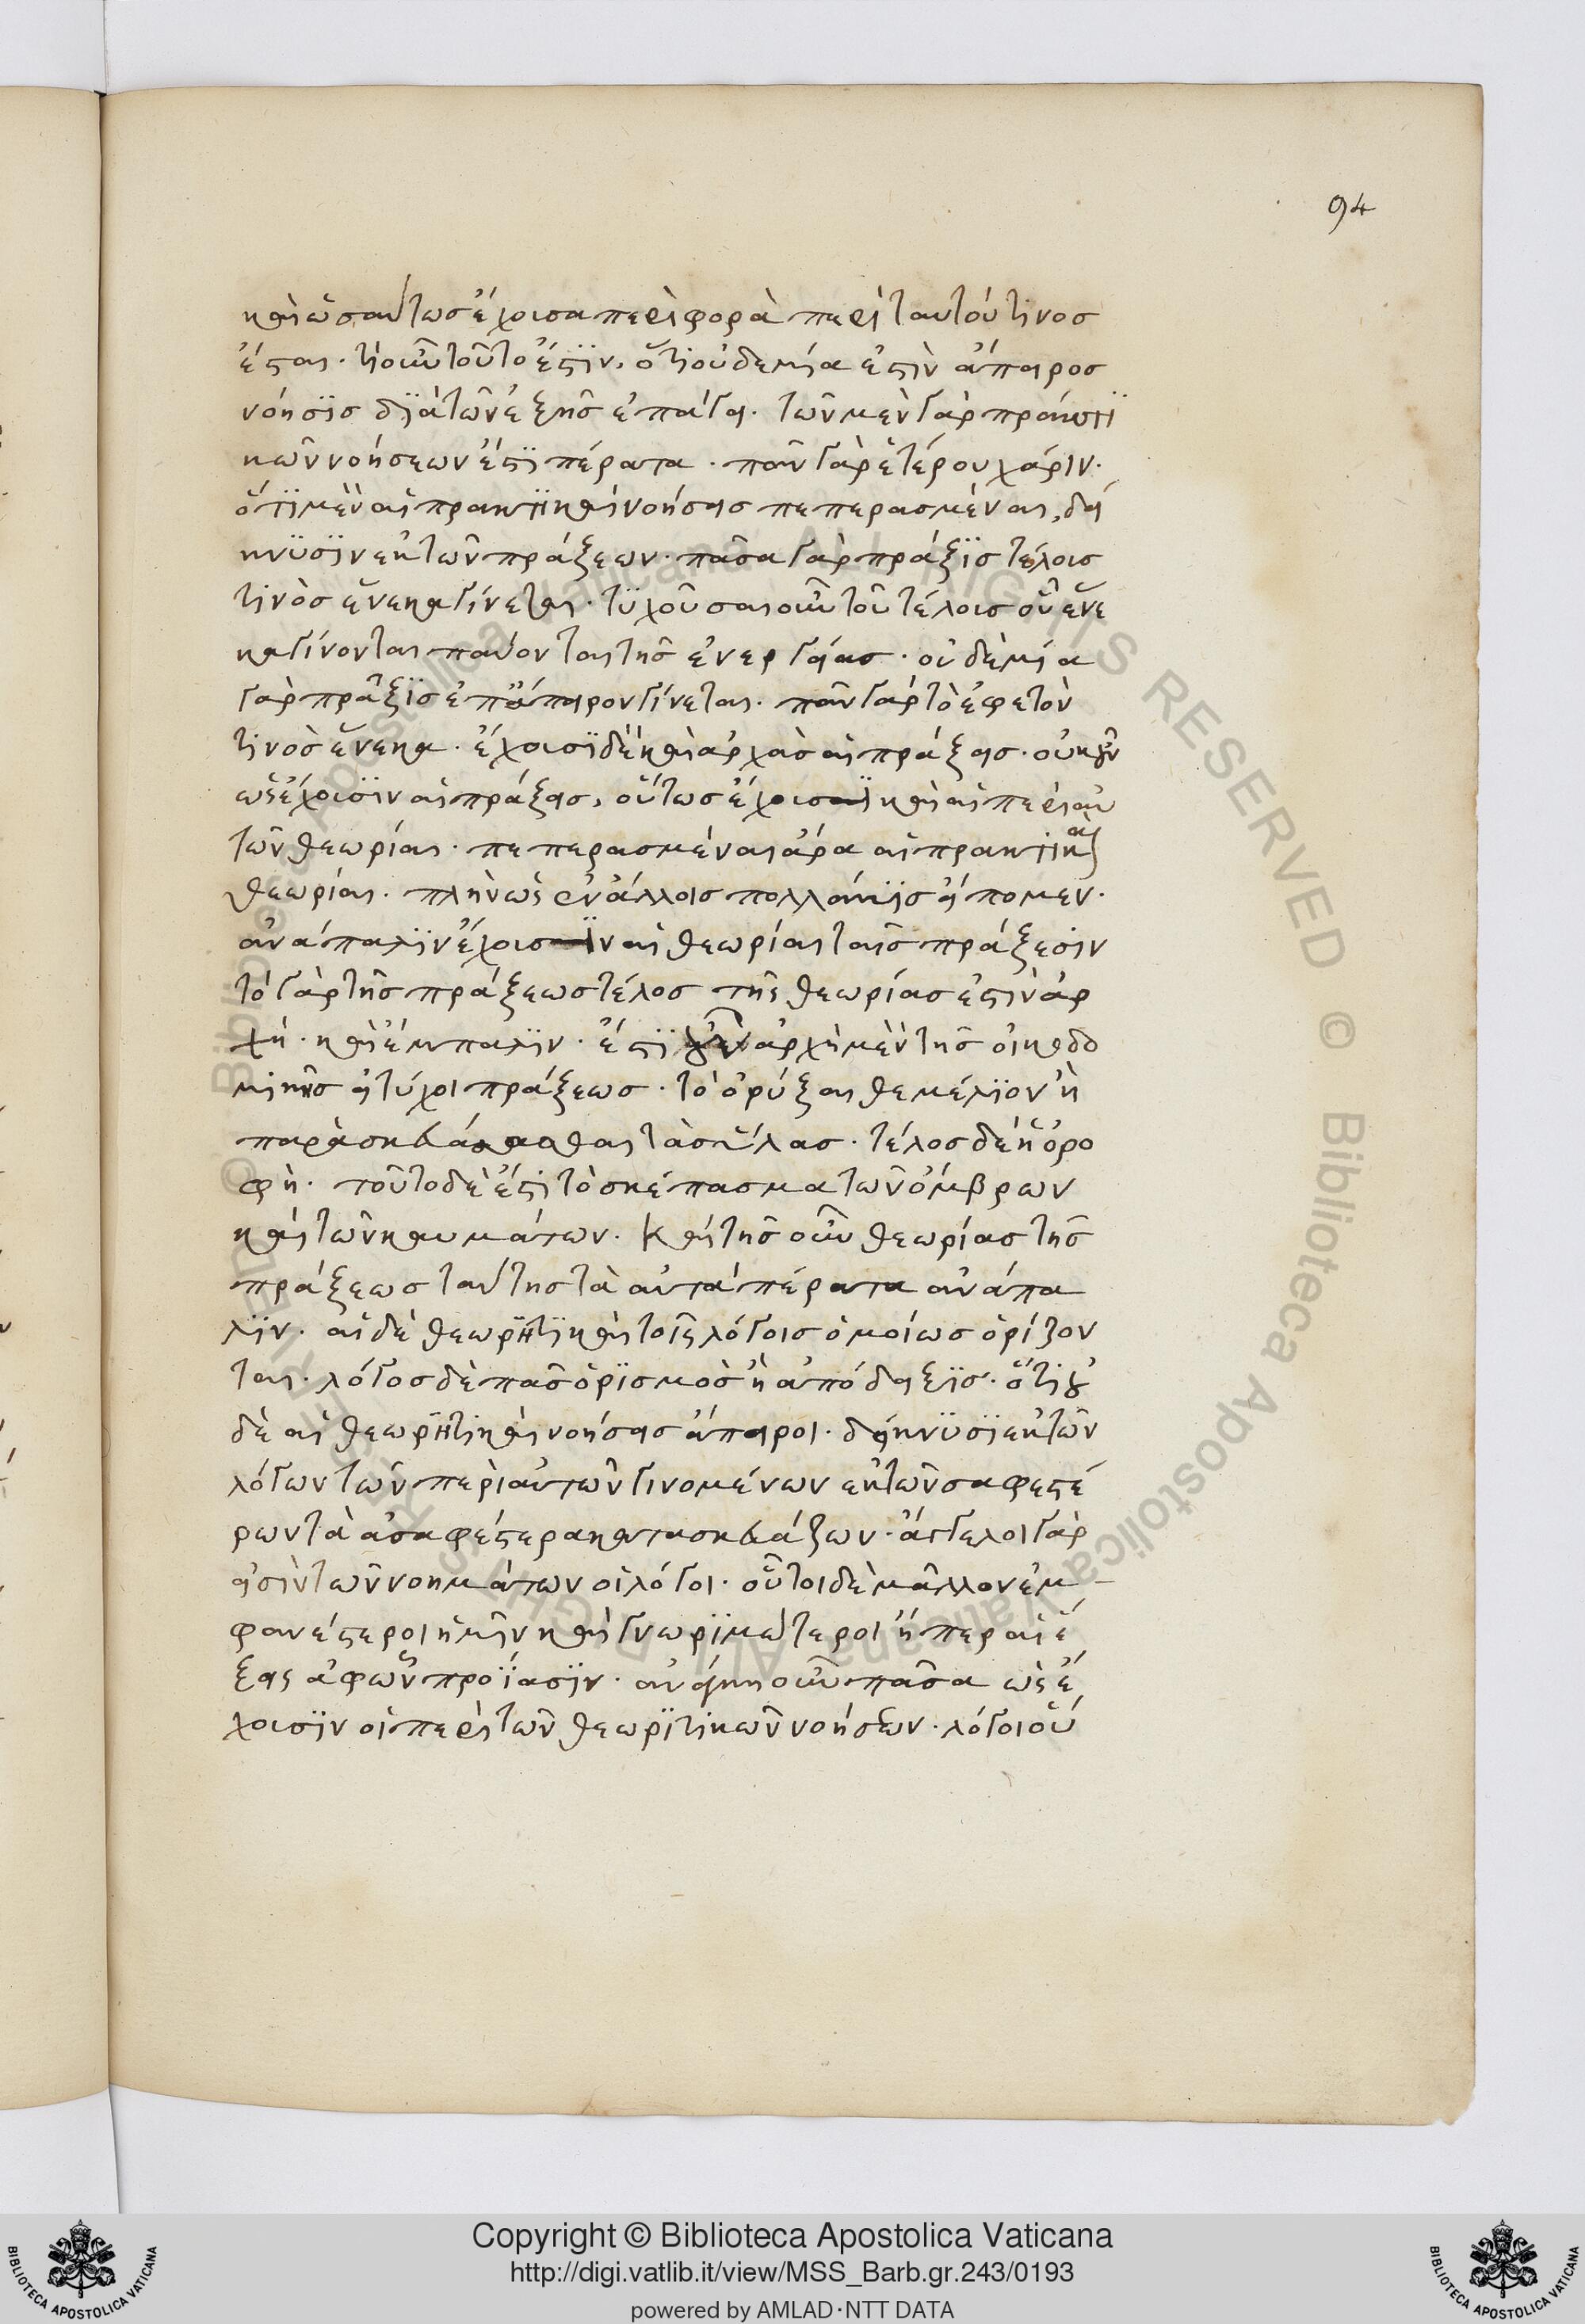 94
καὶ ὡσαύτωσ ἔχουσα περιφορὰ περὶ ταυτοῦ τινοσ
ἔσται· τί οὖν τοῦτο ἔστϊν, ὅτι οὐδεμία ἐστὶν ἄπειροσ
νόησϊσ δϊὰ τῶν ἑξῆσ ἐπάγει· τῶν μὲν γὰρ πρακτϊ
κῶν νοήσεων ἔστϊ πέρατα· πᾶν γὰρ ἑτέρου χάριν·
ὅτϊ μὲν αἱ πρακτϊκαὶ νοήσεισ πεπερασμέναι, δεί
κνϋσϊν ἐκ τῶν πράξεων· πᾶσα γὰρ πράξϊσ τέλουσ
τινὸσ ἕνεκα γίνεται· τϋχοῦσαι οὖν τοῦ τέλουσ οὗ ἕνε
κα γίνονται παύονται τῆσ ἐνεργείασ· οὐδεμία
γὰρ πρᾶξϊσ ἐπ' ἄπειρον γίνεται· πᾶν γὰρ τὸ ἐφετὸν
τινὸσ ἕνεκα· ἔχουσϊ δὲ καὶ ἀρχὰσ αἱ πράξεισ· οὐκοῦν
ὡς ἔχουσϊν αἱ πράξεισ, οὕτωσ ἔχουσϊ καὶ αἱ περὶ αὐ
τῶν θεωρίαι· πεπερασμέναι ἄρα αἱ πρακτικαὶ
θεωρίαι· πλὴν ὡς ἐν ἄλλοισ πολλάκϊσ εἴπομεν·
ἀνάπαλϊν ἔχουσϊν αἱ θεωρίαι ταῖσ πράξεσϊν
τὸ γὰρ τῆσ πράξεωσ τέλοσ τῆς θεωρίασ ἐστὶν ἀρ
χή· καὶ ἔμπαλϊν· ἔστϊ γοῦν ἀρχὴ μὲν τῆσ οἰκοδο
μικῆσ εἰ τύχοι πράξεωσ· τὸ ὀρύξαι θεμέλϊον ἢ
παρασκευάσασθαι τὰσ ὕλασ· τέλοσ δὲ ἡ ὀρο
φὴ· τοῦτο δὲ ἔστι τὸ σκέπασμα τῶν ὄμβρων
καὶ τῶν καυμάτων· Καὶ τῆσ οὖν θεωρίασ τῆσ
πράξεωσ ταύτησ τὰ αὐτὰ πέρατα ἀνάπα
λϊν· αἱ δὲ θεωρητϊκαὶ τοῖς λόγοισ ὁμοίωσ ὁρίζον
ται· λόγοσ δὲ πᾶσ ὁρϊσμὸσ ἢ ἀπόδειξϊσ· ὅτι οὐ
δὲ αἱ θεωρητϊκαὶ νοήσεισ ἄπειροι· δείκνϋσϊ ἐκ τῶν
λόγων τῶν περὶ αὐτῶν γινομένων ἐκ τῶν σαφεστέ
ρων τὰ ἀσαφέστερα κατασκευάζων· ἄγγελοι γὰρ
εἰσὶν τῶν νοημάτων οἱ λόγοι· οὗτοι δὲ μᾶλλον ἐμ-
φανέστεροι ἡμῖν καὶ γνωρϊμώτεροι ἤπερ αἱ ἕ
ξεις ἀφ' ὧν προΐασϊν· ἀνάγκη οὖν πᾶσα ὡς ἔ
χουσϊν οἱ περὶ τῶν θεωρϊτικῶν νοήσεων· λόγοι οὕ